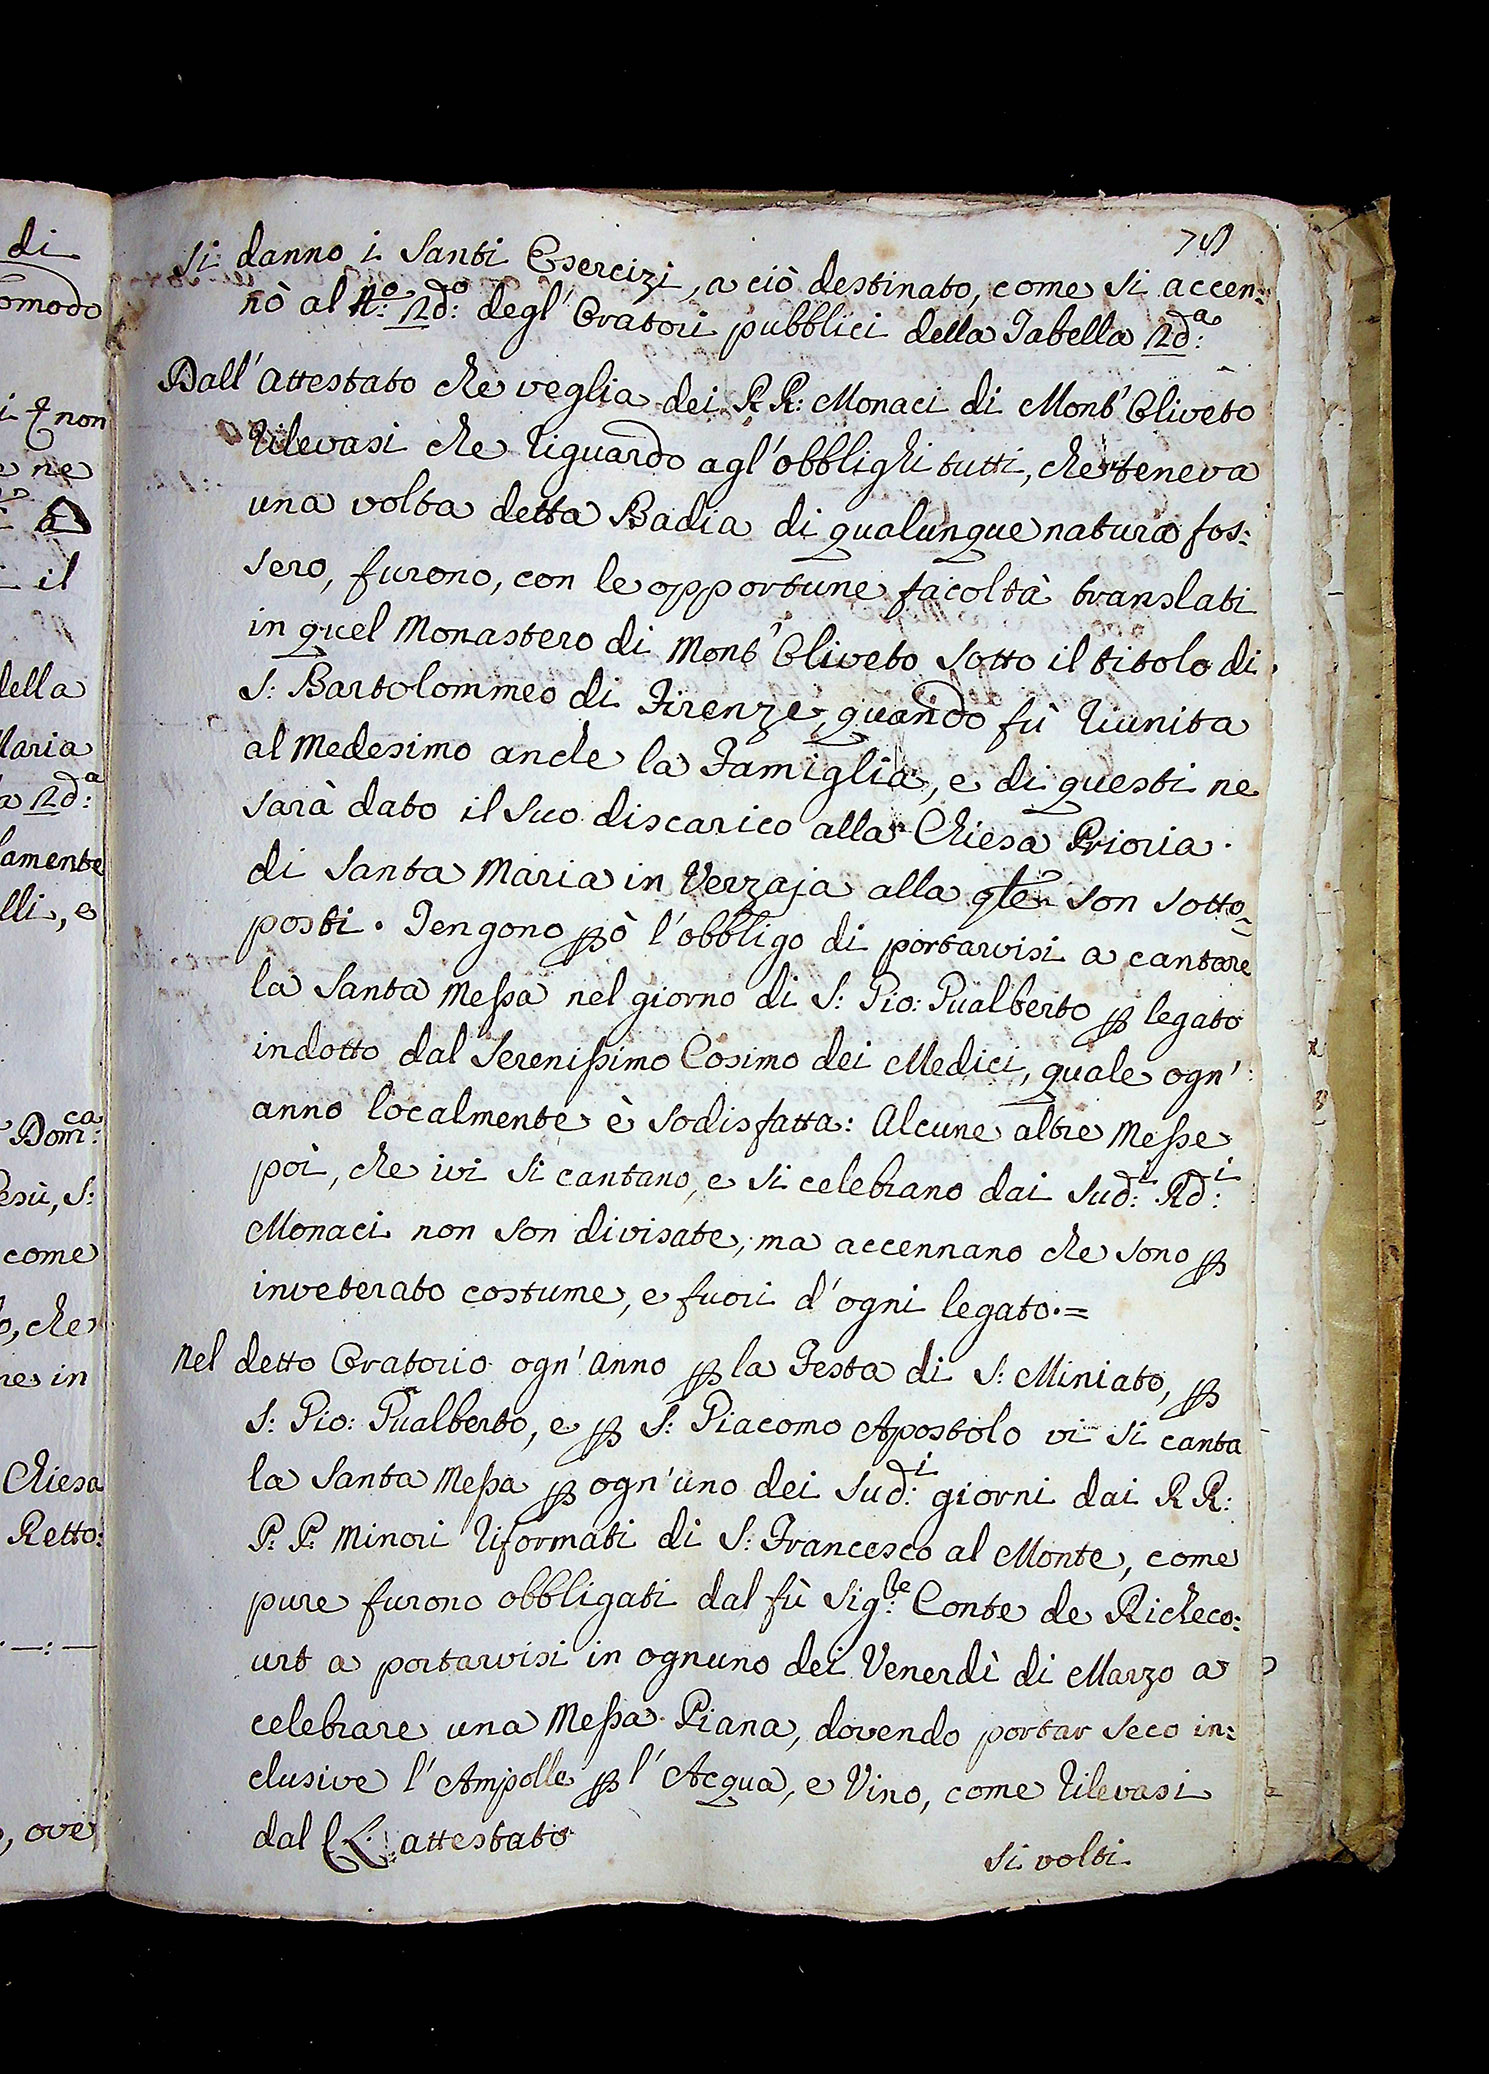 di
omodo
i ꝑ non
e ne
a
il
della
Maria
a 2d:ª
lamente
lli, e
Dom:ca
esù, S:
come
o, che
ne in
Chiesa
Retto:
, ove
78
si danno i Santi Esercizi, a ciò destinato, come si accen:
nò al N:º 2d:º degl' Oratori pubblici della Tabella 2d:ª
Dall' Attestato che veglia dei RR: Monaci di Mont' Oliveto
rilevasi che riguardo agl' obblighi tutti, che teneva
una volta detta Badia di qualunque natura fos:
sero, furono, con le opportune facoltà translati
in quel Monastero di Mont' Oliveto sotto il titolo di
S: Bartolommeo di Firenze, quando fù riunita
al Medesimo anche la Famiglia, e di questi ne
sarà dato il suo discarico alla Chiesa Prioria
di Santa Maria in Verzaja alla qle son sotto=
posti. Tengono ꝑò l'obbligo di portarvisi a cantare
la Santa Messa nel giorno di S: Gio: Gualberto ꝑ legato
indotto dal Serenissimo Cosimo dei Medici, quale ogn'
anno localmente è sodisfatta: Alcune altre Messe
poi, che ivi si cantano, e si celebrano dai Sud:i Rd:i
Monaci non son divisate, ma accennano che sono ꝑ
inveterato costume, e fuori d'ogni legato.=
Nel detto Oratorio ogn' anno ꝑ la Festa di S: Miniato, ꝑ
S: Gio: Gualberto, e ꝑ S: Giacomo Apostolo vi si canta
la Santa Messa ꝑ ogn'uno dei Sud:i giorni dai RR:
P: P: Minori Riformati di S: Francesco al Monte, come
pure furono obbligati dal fù Sig:re Conte de Richeco:
urt a portarvisi in ognuno dei Venerdì di Marzo a
celebrare una Messa Piana, dovendo portar seco in:
clusive l'Ampolle ꝑ l'Acqua, e Vino, come rilevasi
dal attestato
Si volti